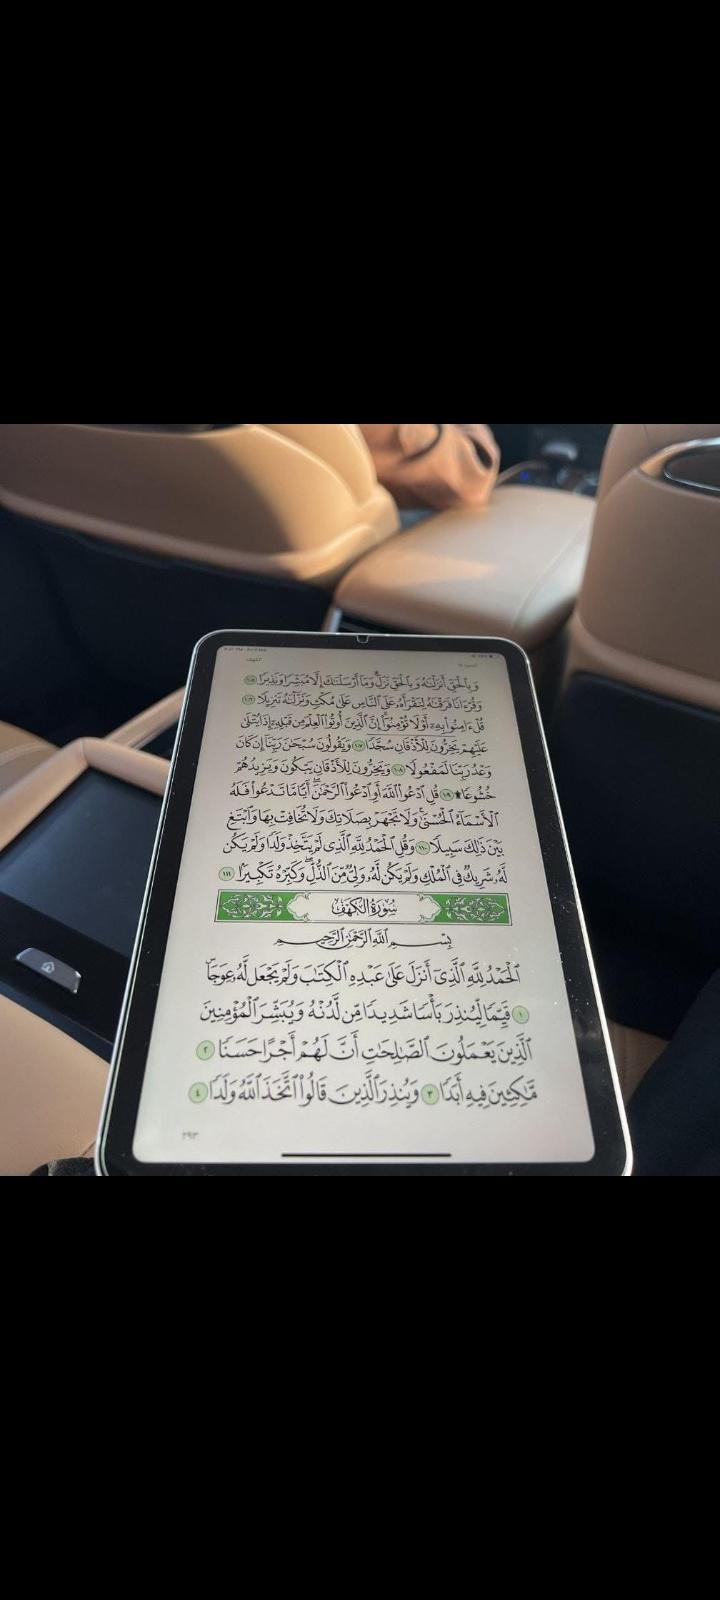 الكهف
وَبِٱلْحَقِّ أَنزَلْنَٰهُ وَبِٱلْحَقِّ نَزَلَ ۗ وَمَآ أَرْسَلْنَٰكَ إِلَّا مُبَشِّرًا وَنَذِيرًا ١٠٥
وَقُرْءَانًا فَرَقْنَٰهُ لِتَقْرَأَهُۥ عَلَى ٱلنَّاسِ عَلَىٰ مُكْثٍ وَنَزَّلْنَٰهُ تَنزِيلًا ١٠٦
قُلْ ءَامِنُوا۟ بِهِۦٓ أَوْ لَا تُؤْمِنُوٓا۟ ۚ إِنَّ ٱلَّذِينَ أُوتُوا۟ ٱلْعِلْمَ مِن قَبْلِهِۦٓ إِذَا يُتْلَىٰ
عَلَيْهِمْ يَخِرُّونَ لِلْأَذْقَانِ سُجَّدًا ١٠٧ وَيَقُولُونَ سُبْحَٰنَ رَبِّنَآ إِن كَانَ
وَعْدُ رَبِّنَا لَمَفْعُولًا ١٠٨ وَيَخِرُّونَ لِلْأَذْقَانِ يَبْكُونَ وَيَزِيدُهُمْ
خُشُوعًا ۩ ١٠٩ قُلِ ٱدْعُوا۟ ٱللَّهَ أَوِ ٱدْعُوا۟ ٱلرَّحْمَٰنَ ۖ أَيًّا مَّا تَدْعُوا۟ فَلَهُ
ٱلْأَسْمَآءُ ٱلْحُسْنَىٰ ۚ وَلَا تَجْهَرْ بِصَلَاتِكَ وَلَا تُخَافِتْ بِهَا وَٱبْتَغِ
بَيْنَ ذَٰلِكَ سَبِيلًا ١١٠ وَقُلِ ٱلْحَمْدُ لِلَّهِ ٱلَّذِى لَمْ يَتَّخِذْ وَلَدًا وَلَمْ يَكُن
لَّهُۥ شَرِيكٌ فِى ٱلْمُلْكِ وَلَمْ يَكُن لَّهُۥ وَلِىٌّ مِّنَ ٱلذُّلِّ ۖ وَكَبِّرْهُ تَكْبِيرًۢا ١١١
سُورَةُ ٱلْكَهْفِ
بِسْمِ ٱللَّهِ ٱلرَّحْمَٰنِ ٱلرَّحِيمِ
ٱلْحَمْدُ لِلَّهِ ٱلَّذِىٓ أَنزَلَ عَلَىٰ عَبْدِهِ ٱلْكِتَٰبَ وَلَمْ يَجْعَل لَّهُۥ عِوَجَاۜ
١ قَيِّمًا لِّيُنذِرَ بَأْسًا شَدِيدًا مِّن لَّدُنْهُ وَيُبَشِّرَ ٱلْمُؤْمِنِينَ
ٱلَّذِينَ يَعْمَلُونَ ٱلصَّٰلِحَٰتِ أَنَّ لَهُمْ أَجْرًا حَسَنًا ٢
مَّٰكِثِينَ فِيهِ أَبَدًا ٣ وَيُنذِرَ ٱلَّذِينَ قَالُوا۟ ٱتَّخَذَ ٱللَّهُ وَلَدًا ٤
٢٩٣